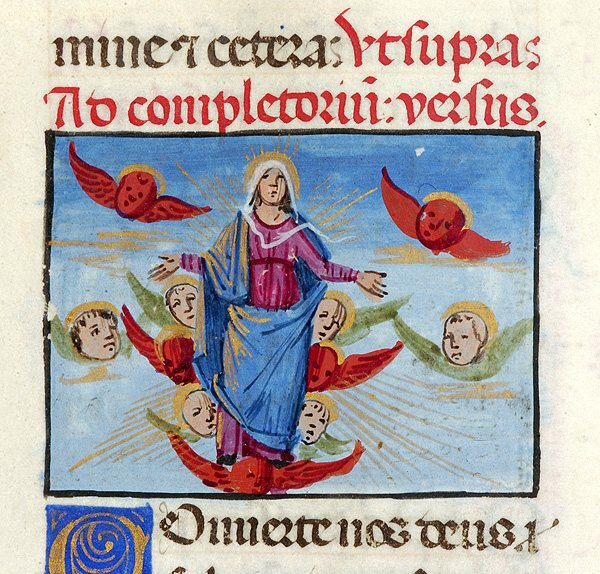 mine ⁊ cetera: Vt supra:
Ad completoriū: versus.
Conuerte nos deus ⁊